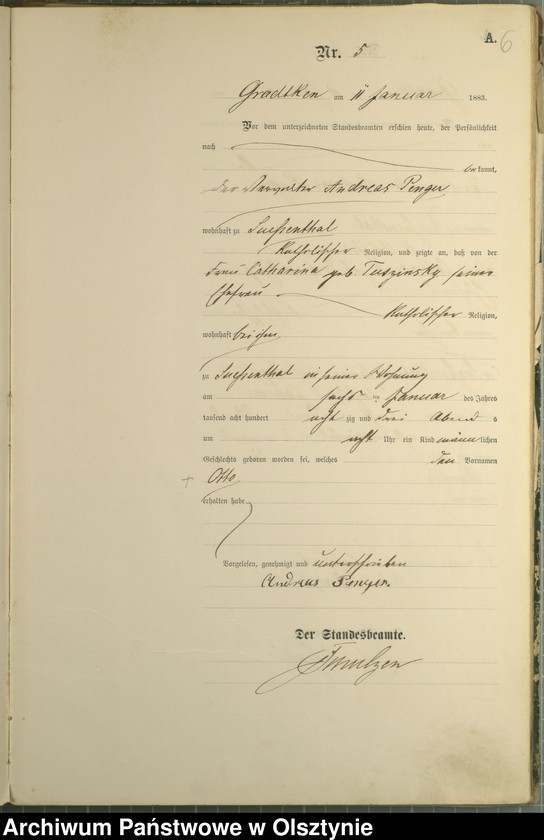 A. 6
Nr. 5
Gradtken am 11 Januar 1883.
Vor dem unterzeichneten Standesbeamten erschien heute, der Persönlichkeit
nach
bekannt,
der Verwalter Andreas Penger
wohnhaft zu
Katholischer Religion, und zeigte an, daß von der
Frau Catharina geb. Tuszinsky seiner
Ehefrau
Katholischer Religion,
wohnhaft bei ihm
zu in seiner Wohnung
am sechs ten Januar des Jahres
tausend acht hundert acht zig und drei Abend s
um acht Uhr ein Kind männlichen
Geschlechts geboren worden sei, welches den Vornamen
Otto
erhalten habe
Vorgelesen, genehmigt und unterschrieben
Andreas Penger.
Der Standesbeamte.
Archiwum Państwowe w Olsztynie